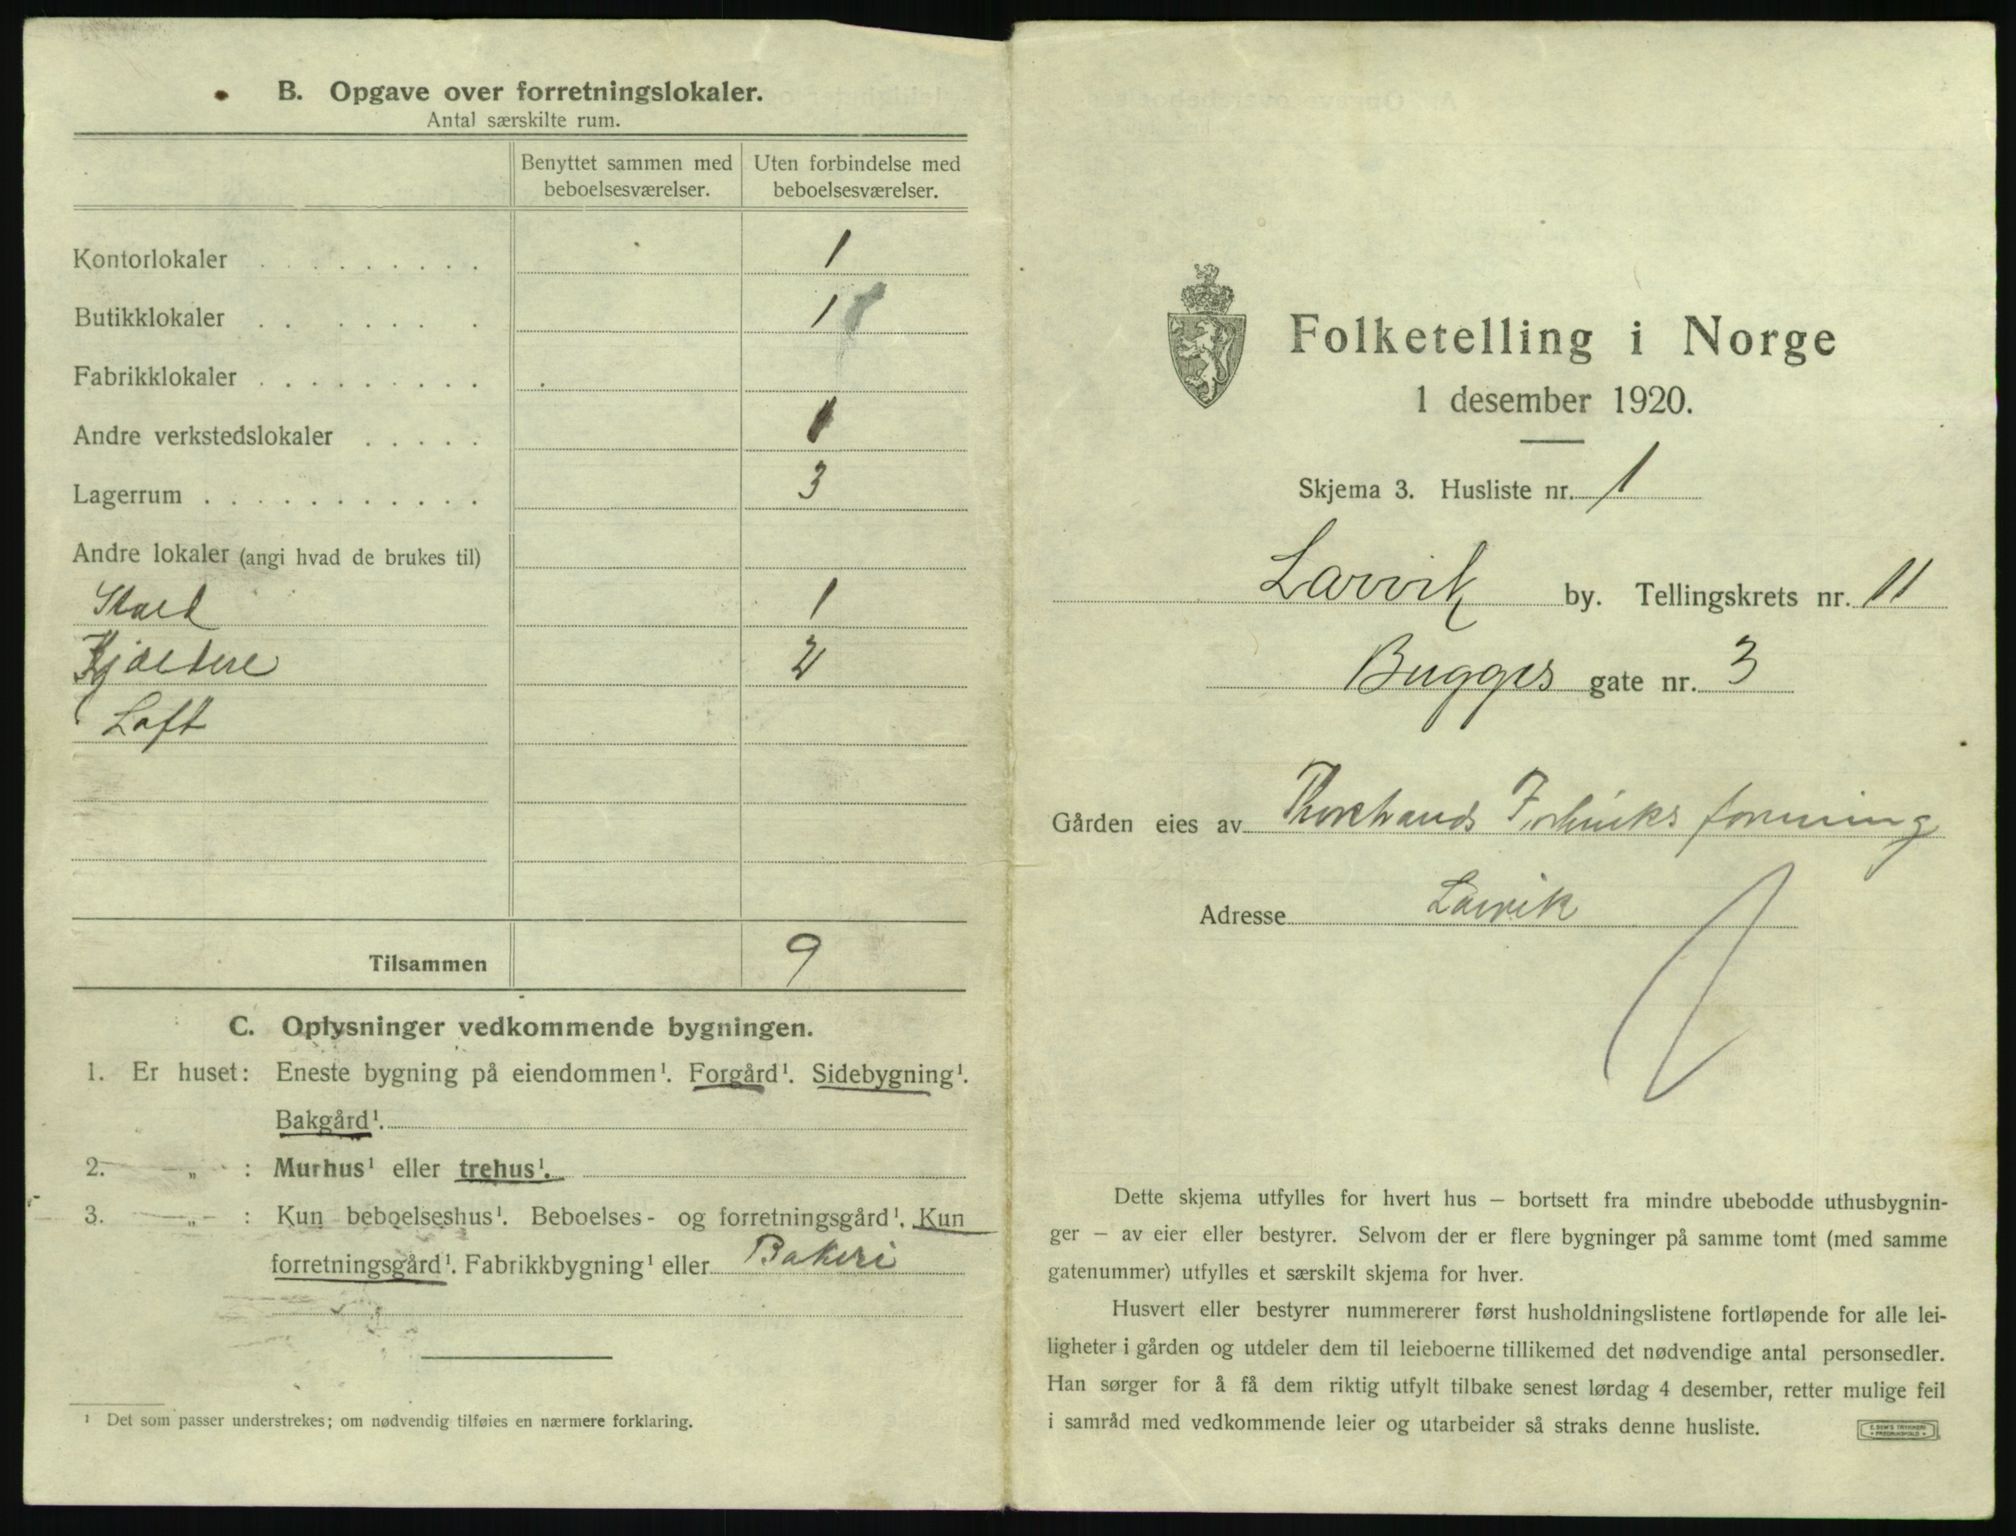 B. Opgave over forretningslokaler.
Antal særskilte rum.
Benyttet sammen med beboelsesværelser.
Uten forbindelse med beboelsesværelser.
Kontorlokaler . . . . . . . . . 1
Butikklokaler . . . . . . . 1
Fabrikklokaler . . . . . . . . .
Andre verkstedslokaler . . . . . 1
Lagerrum . . . . . . . . . . . 3
Andre lokaler (angi hvad de brukes til)
Stald 1
Kjældere 2
Loft
Tilsammen 9
C. Oplysninger vedkommende bygningen.
1. Er huset: Eneste bygning på eiendommen¹. Forgård¹. Sidebygning¹.
Bakgård¹.
2. —„— : Murhus¹ eller trehus¹.
3. —„— : Kun beboelseshus¹. Beboelses- og forretningsgård¹. Kun
forretningsgård¹. Fabrikkbygning¹ eller Bakeri
¹ Det som passer understrekes; om nødvendig tilføies en nærmere forklaring.
Folketelling i Norge
1 desember 1920.
Skjema 3. Husliste nr. 1
Larvik by. Tellingskrets nr. 11
Bugges gate nr. 3
Gården eies av forening
Adresse Larvik
Dette skjema utfylles for hvert hus — bortsett fra mindre ubebodde uthusbygnin-
ger — av eier eller bestyrer. Selvom der er flere bygninger på samme tomt (med samme
gatenummer) utfylles et særskilt skjema for hver.
Husvert eller bestyrer nummererer først husholdningslistene fortløpende for alle lei-
ligheter i gården og utdeler dem til leieboerne tillikemed det nødvendige antal personsedler.
Han sørger for å få dem riktig utfylt tilbake senest lørdag 4 desember, retter mulige feil
i samråd med vedkommende leier og utarbeider så straks denne husliste.